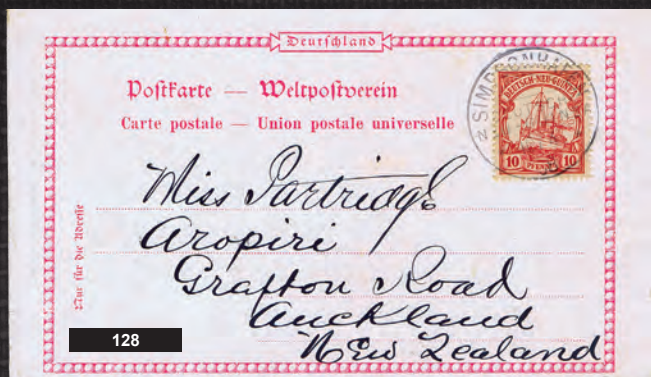 Deutschland
Postkarte — Weltpostverein
Carte postale — Union postale universelle
SIMPSONHAFEN
DEUTSCH-NEU-GUINEA
10 PFENNIG 10
Miss Partridge
Aropiri
Grafton Road
Auckland
New Zealand
Nur für die Adresse
128